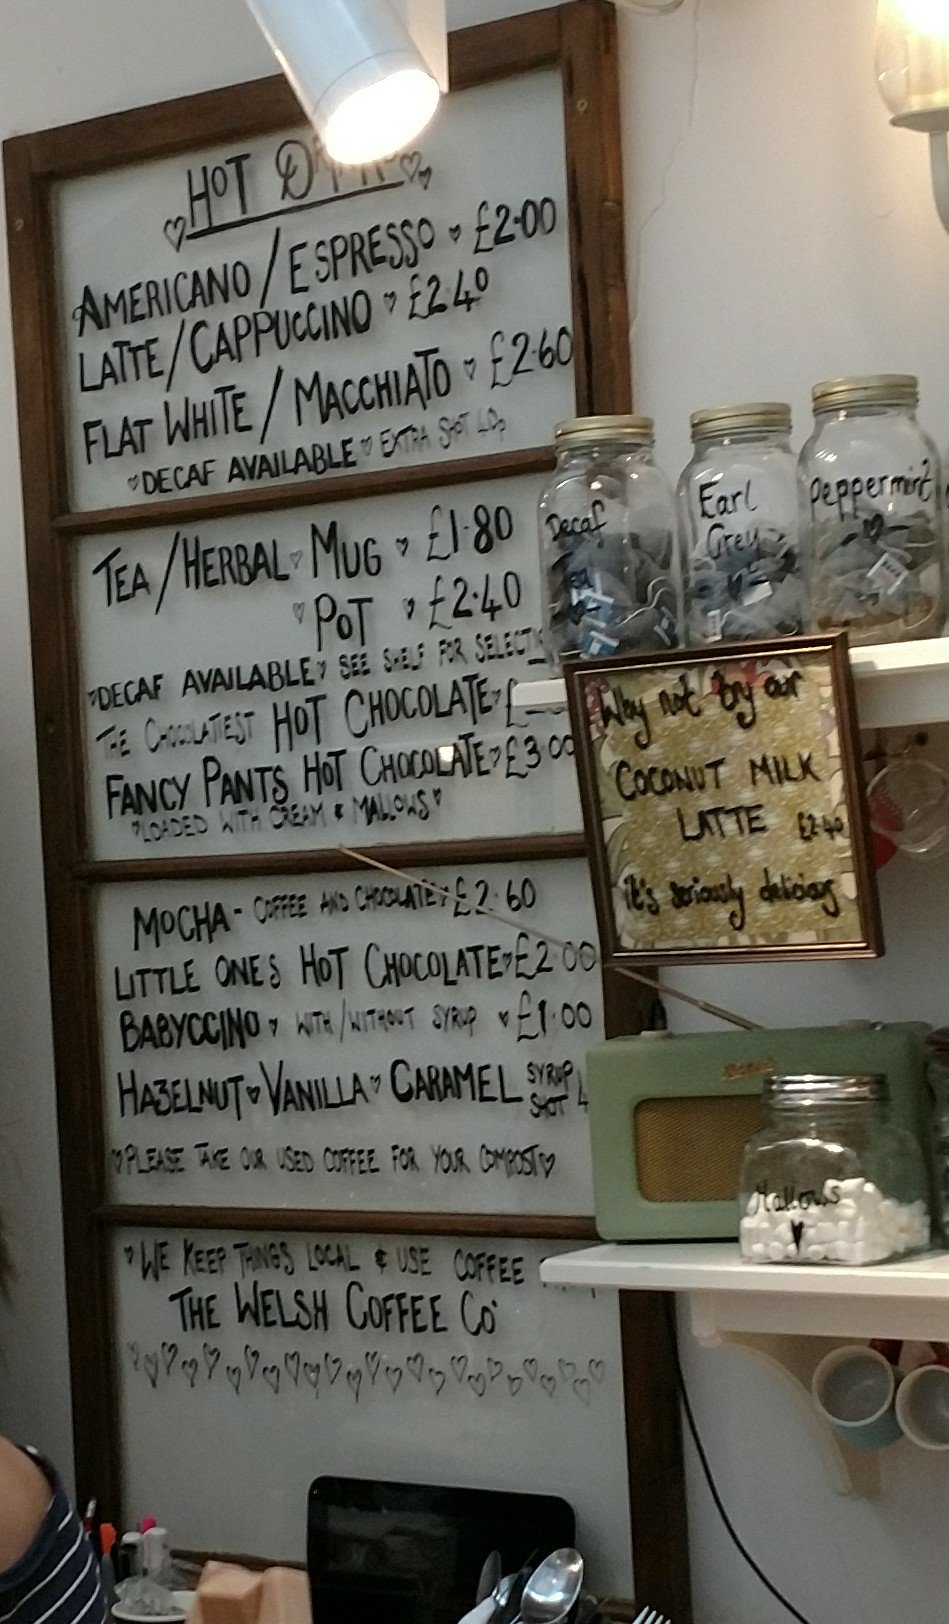 HOT
AMERICANO / ESPRESSO £2.00
LATTE/CAPPUCCINO £2.40
FLAT WHITE / MACCHIATO £2.60
DECAF AVAILABLE EXTRA SHOT
TEA/HERBAL MUG £1.80
POT £2.40
DECAF AVAILABLE SEE SHELF FOR
THE CHOCOLATIEST HOT CHOCOLATE £
FANCY PANTS HOT CHOCOLATE £3.00
LOADED WITH CREAM & MALLOWS
MOCHA - COFFEE AND CHOCOLATE £2.60
LITTLE ONES HOT CHOCOLATE £2.00
BABYCCINO WITH/WITHOUT SYRUP £1.00
HAZELNUT VANILLA CARAMEL SYRUP
SHOT
PLEASE TAKE OUR USED COFFEE FOR YOUR COMPOST
WE KEEP THINGS LOCAL & USE COFFEE
THE WELSH COFFEE CO
Decaf
Earl
Grey
Peppermint
Why not try our
COCONUT MILK
LATTE £2.40
it's seriously delicious
Mallows